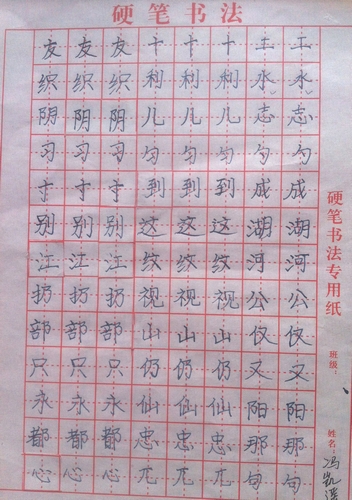 硬笔书法
友友友十十十工工
织织织利利利永永
阴阴阴儿儿儿志志
习习习匀匀匀勾勾
寸寸寸到到到成成
别别别这这这湖湖
江江江纹纹纹河河
扔扔扔视视视公公
部部部山山山仪仪
只只只仍仍仍又又
永永永仙仙仙阳阳
都都都忠忠忠那那
心心心兀兀兀句句
硬笔书法专用纸
班级:
姓名 冯凯